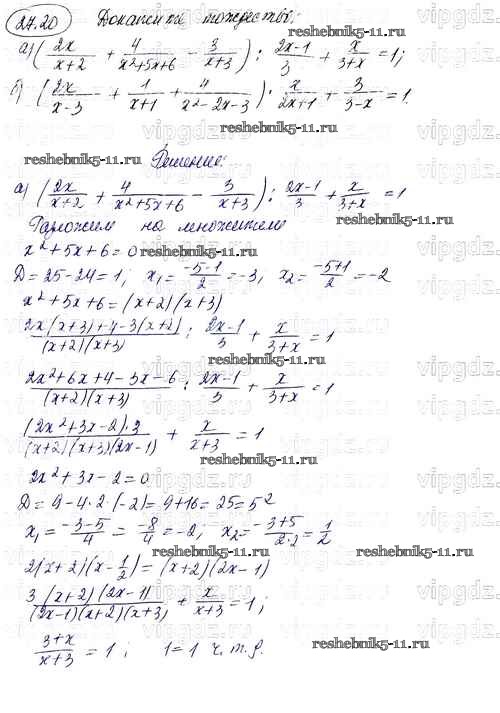 27.20 Докажите тождество:
а) (2x/(x+2) + 4/(x²+5x+6) - 3/(x+3)) : (2x-1)/3 + x/(3+x) = 1;
б) (2x/(x-3) + 1/(x+1) + 4/(x²-2x-3)) : x/(2x+1) + 3/(3-x) = 1.
reshebnik5-11.ru
reshebnik5-11.ru Решение:
а) (2x/(x+2) + 4/(x²+5x+6) - 3/(x+3)) : (2x-1)/3 + x/(3+x) = 1
Разложим на множители
reshebnik5-11.ru
x²+5x+6=0
reshebnik5-11.ru
D=25-24=1; x₁=(-5-1)/2=-3, x₂=(-5+1)/2=-2
x²+5x+6=(x+2)(x+3)
(2x(x+3)+4-3(x+2))/((x+2)(x+3)) : (2x-1)/3 + x/(3+x) = 1
reshebnik5-11.ru
(2x²+6x+4-3x-6)/((x+2)(x+3)) : (2x-1)/3 + x/(3+x) = 1
((2x²+3x-2)·3)/((x+2)(x+3)(2x-1)) + x/(x+3) = 1
reshebnik5-11.ru
2x²+3x-2=0
D=9-4·2·(-2)=9+16=25=5²
x₁=(-3-5)/4=-8/4=-2; x₂=(-3+5)/(2·2)=1/2
reshebnik5-11.ru
reshebnik5-11.ru
2(x+2)(x-1/2)=(x+2)(2x-1)
(3(x+2)(2x-1))/((2x-1)(x+2)(x+3)) + x/(x+3) = 1;
reshebnik5-11.ru
(3+x)/(x+3) = 1; 1=1 ч.т.д.